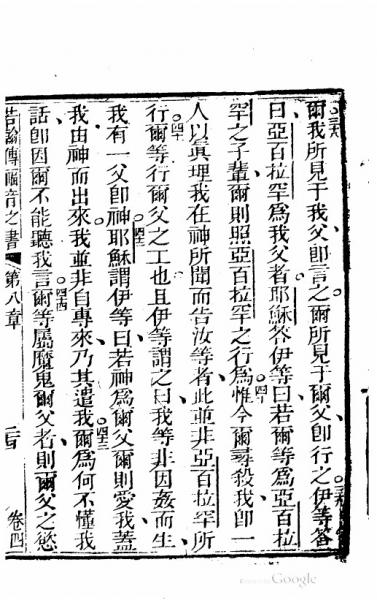 三八
爾我所見于我父卽言之爾所見于爾父卽行之伊等答
三九
曰亞百拉罕爲我父者耶穌答伊等曰若爾等爲亞百拉
罕之子輩爾則照亞百拉罕之行爲惟今爾尋殺我卽一
四十
人以眞理我在神所聞而告汝等者此並非亞百拉罕所
行爾等行爾父之工也且伊等謂之曰我等非因姦而生
四一
我有一父卽神耶穌謂伊等曰若神爲爾父爾則愛我蓋
四二
我由神而出來我並非自專來乃其遣我爾爲何不懂我
四三
話卽因爾不能聽我言爾等屬魔鬼爾父者則爾父之慾
四四
若翰傳福音之書 第八章 卷四
Google